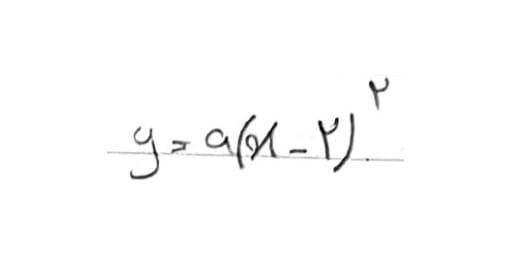 y = a(x - ۲)^۲